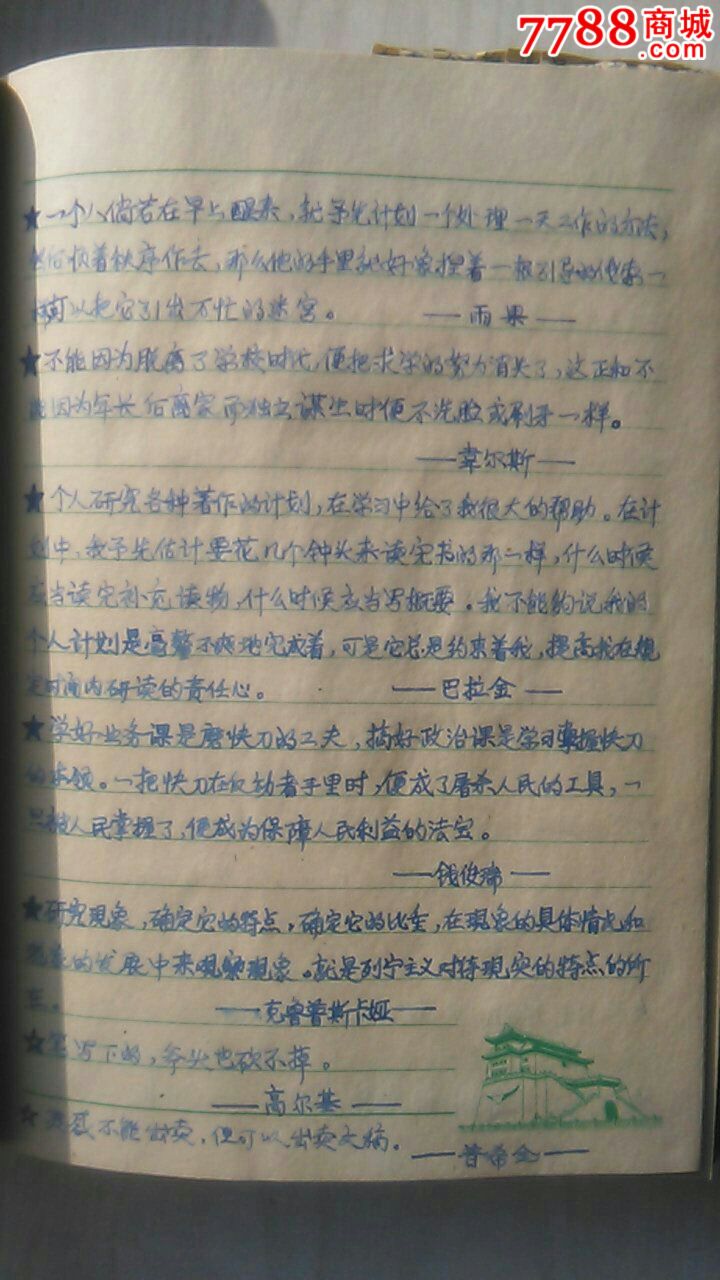 7788商城
.com
★一个人倘若在早上醒来，就事先计划一个处理一天工作的方法，
然后顺着秩序作去，那么他的手里就好象捏着一根引导的线索一
样可以把它引出万忙的迷宫。 ——雨果——
★不能因为脱离了学校时代，便把求学的努力消失了，这正和不
能因为年长后离家而独立谋生时便不洗脸或刷牙一样。
——韋尔斯——
★个人研究各种著作的计划，在学习中给了我很大的帮助。在计
划中，我予先估计要花几个钟头来读完书的那一样，什么时候
应当读完补充读物，什么时候应当写概要。我不能够说我的
个人计划是毫釐不爽地完成着，可是它总是约束着我，提高我在规
定时间内研读的责任心。 ——巴拉金——
★学好业务课是磨快刀的工夫，搞好政治课是学习掌握快刀
的本领。一把快刀在反动者手里时，便成了屠杀人民的工具，一
旦被人民掌握了，便成为保障人民利益的法宝。
——钱俊瑞——
★研究现象，确定它的特点，确定它的比重，在现象的具体情况和
现象的发展中来观察现象。就是列宁主义对待现实的特点的所
在。 ——克鲁普斯卡娅——
★笔写下的，斧头也砍不掉。
——高尔基——
★灵感不能出卖，但可以出卖文稿。 ——普希金——